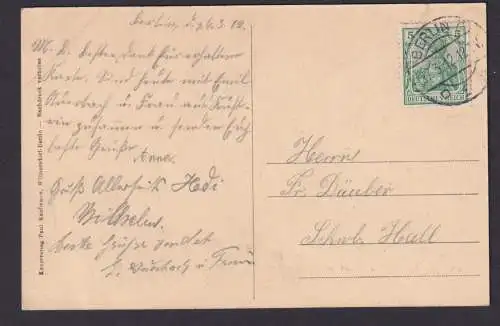 Berlin, d. 6.3.12.
M. L. besten Dank für erhaltene
Karte. Sind heute mit Emil
Auerbach u. Frau aus
zusammen u. senden Euch
beste Grüße
Anna.
Gruß Allerseits Hedi
Wilhelm.
beste Grüße sendet
E. Auerbach u. Frau
Kunstverlag Paul Kaufmann, Wilmersdorf-Berlin — Nachdruck verboten
5 5
DEUTSCHES REICH
BERLIN
Herrn
Fr. Däuber
Schwb. Hall